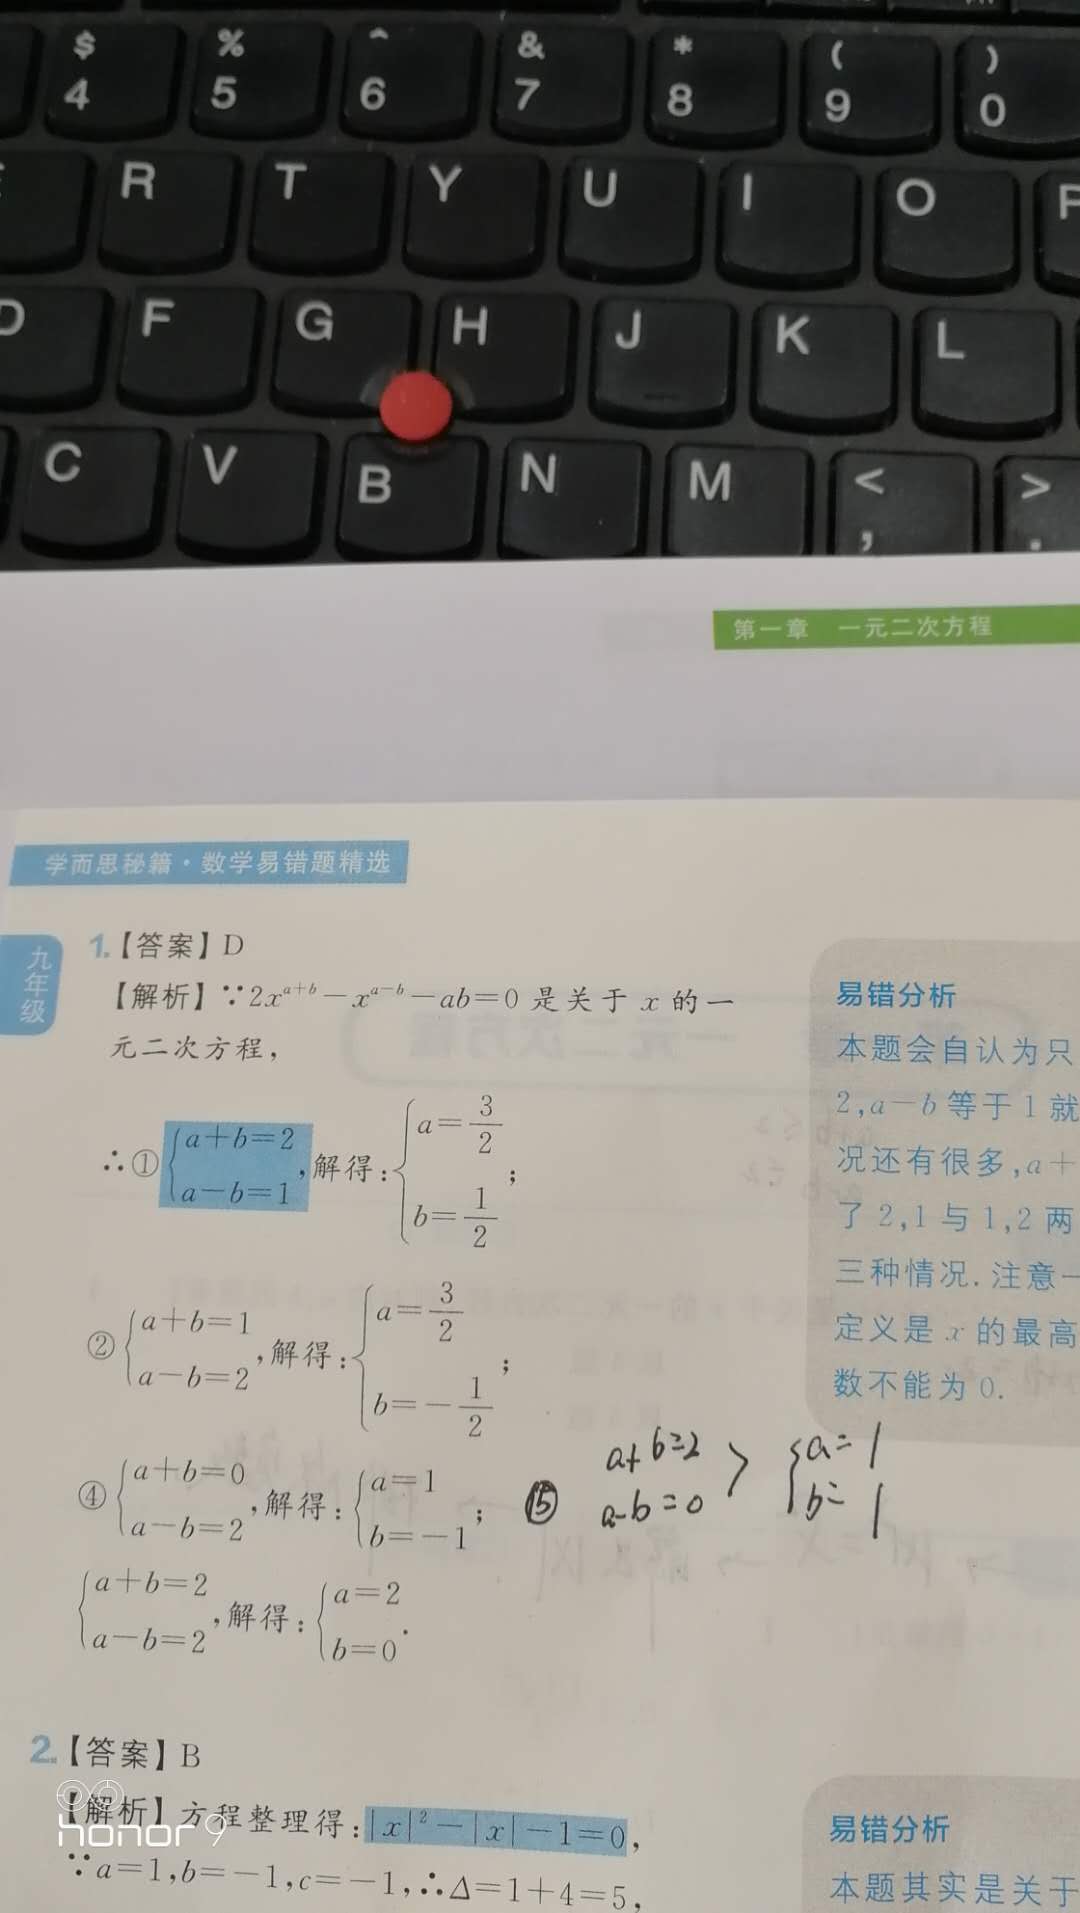 $ % ^ & * ( )
4 5 6 7 8 9 0
R T Y U I O P
D F G H J K L
C V B N M < >
, .
第一章 一元二次方程
学而思秘籍·数学易错题精选
九年级
1.【答案】D
【解析】∵2x^{a+b}－x^{a－b}－ab=0 是关于 x 的一
元二次方程，
∴①{a+b=2, a－b=1，解得：{a=3/2, b=1/2；
②{a+b=1, a－b=2，解得：{a=3/2, b=－1/2；
④{a+b=0, a－b=2，解得：{a=1, b=－1；
⑤ a+b=2, a-b=0 > {a=1, b=1
{a+b=2, a－b=2，解得：{a=2, b=0.
易错分析
本题会自认为只
2，a－b 等于 1 就
况还有很多，a+
了 2，1 与 1，2 两
三种情况.注意一
定义是 x 的最高
数不能为 0.
2.【答案】B
【解析】方程整理得：|x|²－|x|－1=0，
∵a=1，b=－1，c=－1，∴Δ=1+4=5，
易错分析
本题其实是关于
honor 9